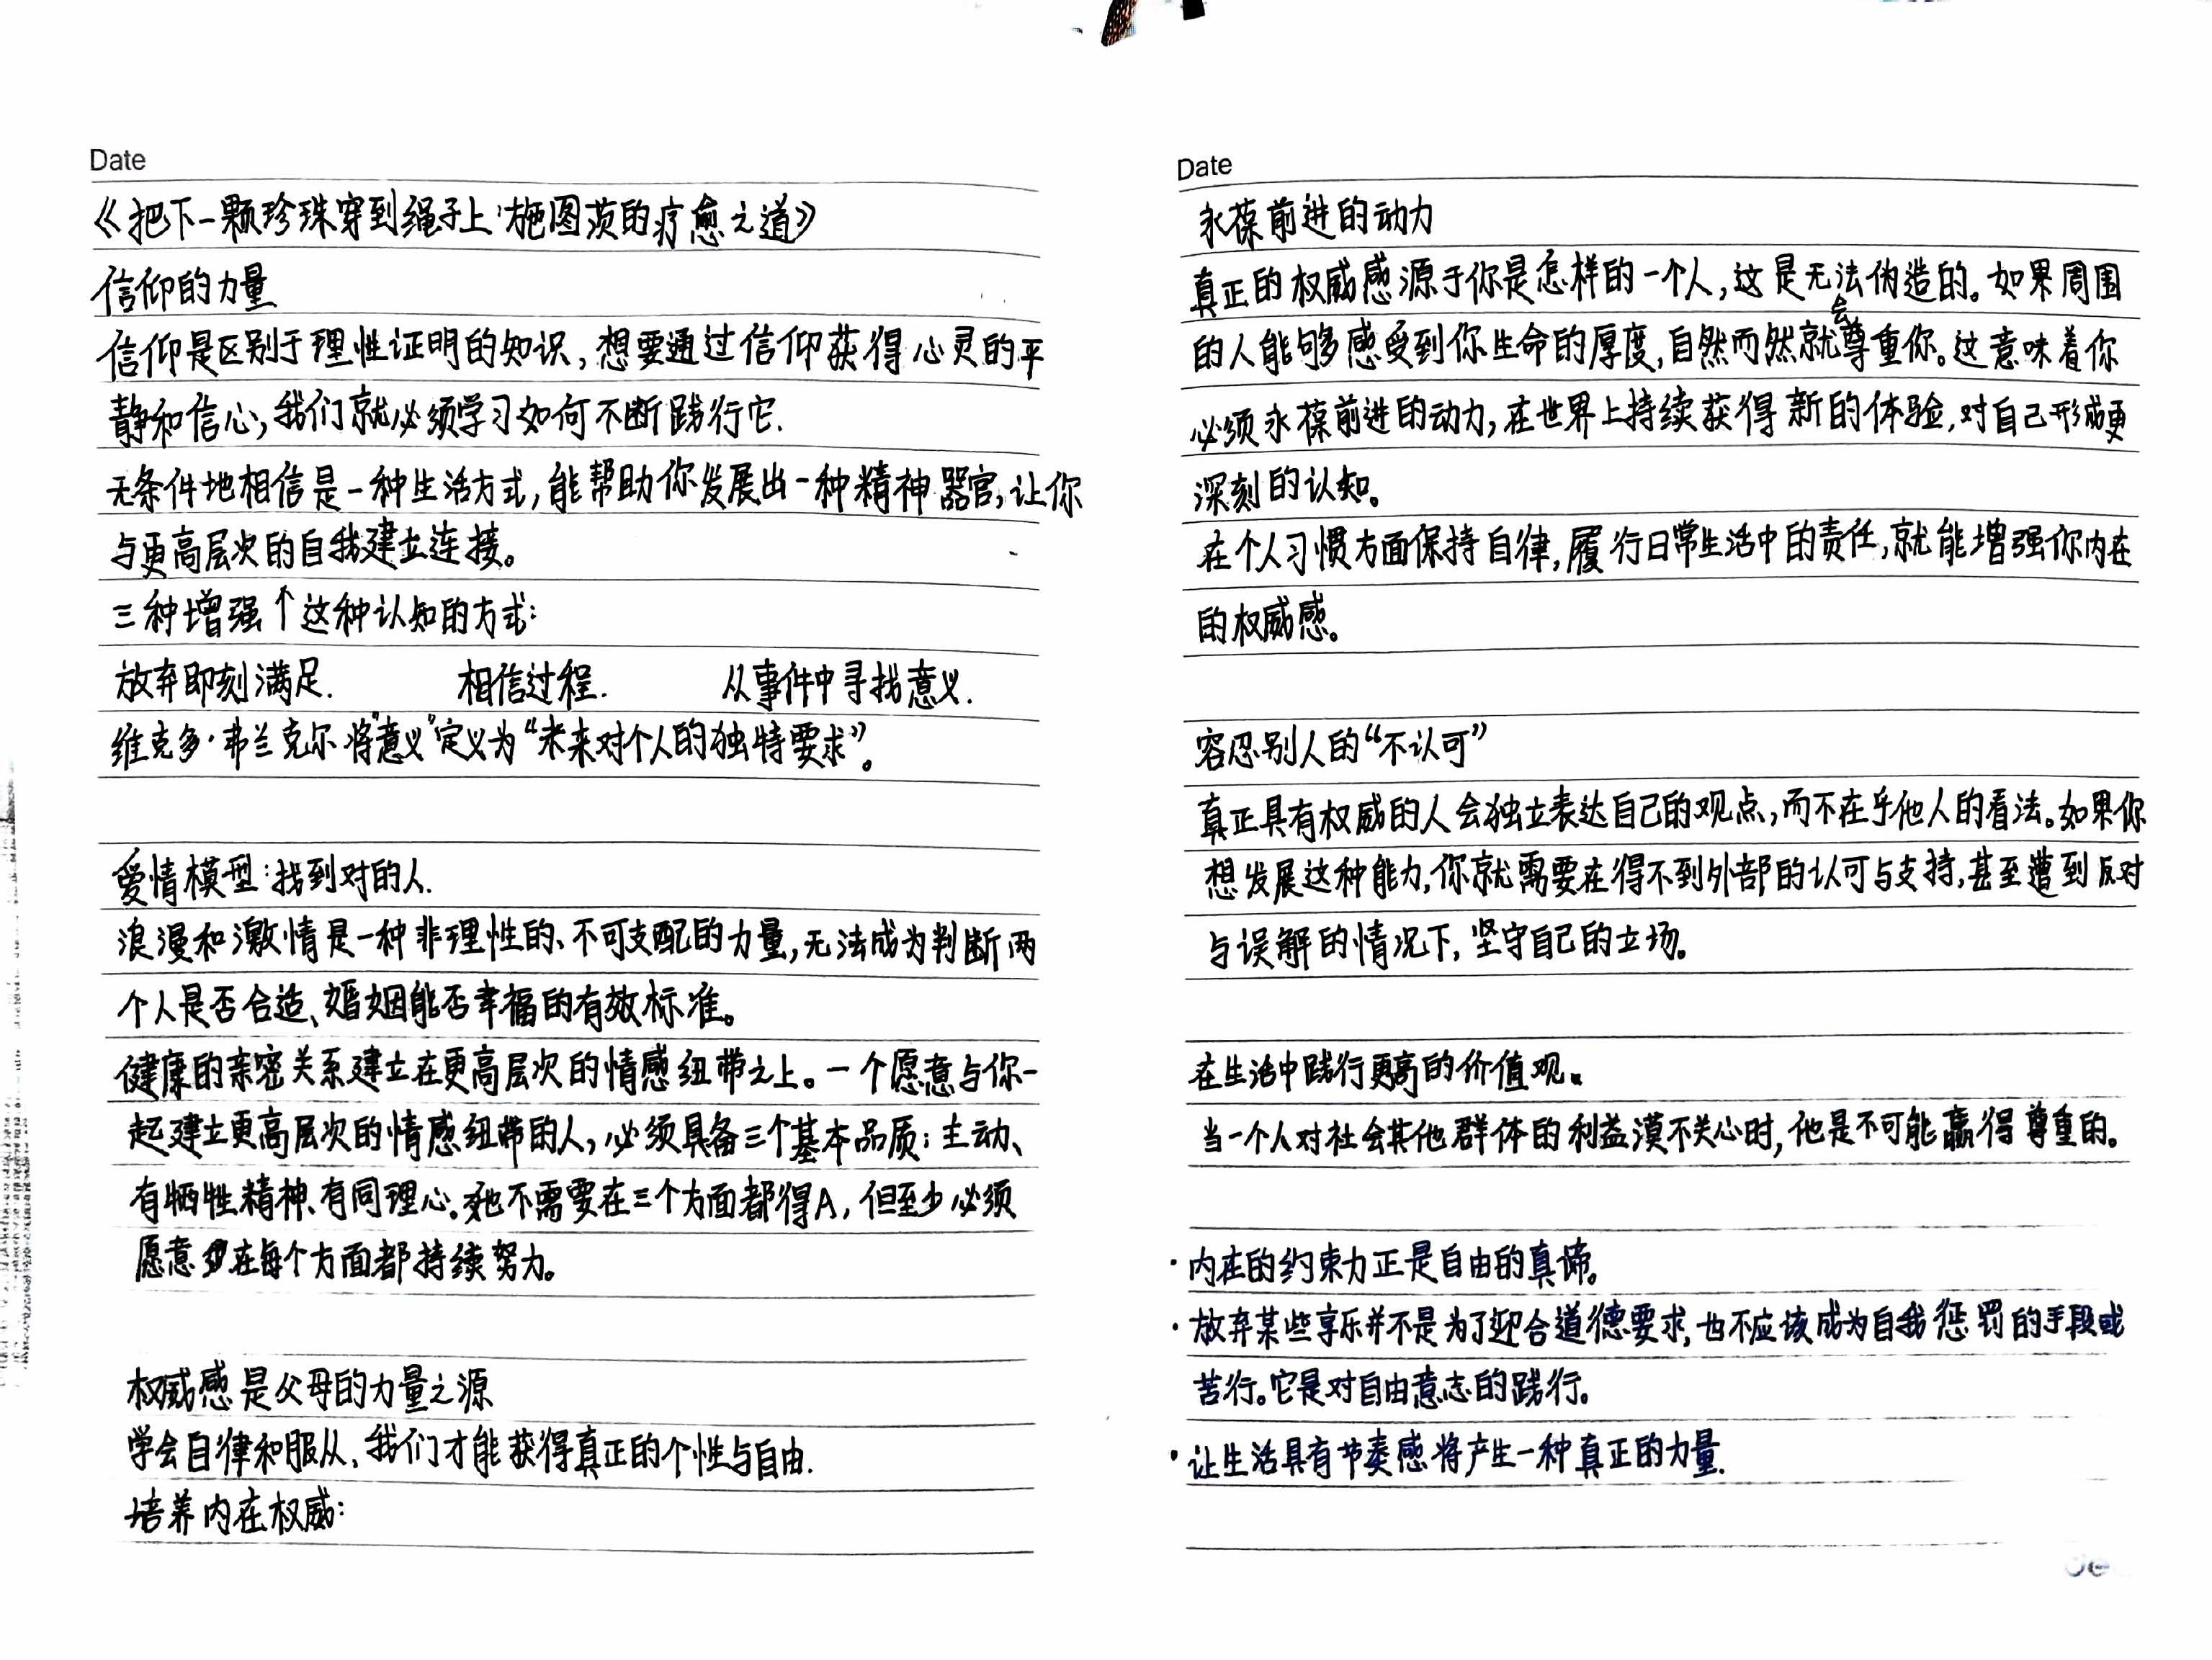 Date
《把下一颗珍珠穿到绳子上:施图茨的疗愈之道》
信仰的力量
信仰是区别于理性证明的知识,想要通过信仰获得心灵的平
静和信心,我们就必须学习如何不断践行它.
无条件地相信是一种生活方式,能帮助你发展出一种精神器官,让你
与更高层次的自我建立连接。
三种增强↑这种认知的方式:
放弃即刻满足. 相信过程. 从事件中寻找意义.
维克多·弗兰克尔将“意义”定义为“未来对个人的独特要求”。
爱情模型:找到对的人.
浪漫和激情是一种非理性的、不可支配的力量,无法成为判断两
个人是否合适、婚姻能否幸福的有效标准。
健康的亲密关系建立在更高层次的情感纽带之上。一个愿意与你一
起建立更高层次的情感纽带的人,必须具备三个基本品质:主动、
有牺牲精神、有同理心。她不需要在三个方面都得A,但至少必须
愿意在每个方面都持续努力。
权威感是父母的力量之源
学会自律和服从,我们才能获得真正的个性与自由.
培养内在权威:
Date
永葆前进的动力
真正的权威感源于你是怎样的一个人,这是无法伪造的。如果周围
的人能够感受到你生命的厚度,自然而然就会尊重你。这意味着你
必须永葆前进的动力,在世界上持续获得新的体验,对自己形成更
深刻的认知。
在个人习惯方面保持自律,履行日常生活中的责任,就能增强你内在
的权威感。
容忍别人的“不认可”
真正具有权威的人会独立表达自己的观点,而不在乎他人的看法。如果你
想发展这种能力,你就需要在得不到外部的认可与支持,甚至遭到反对
与误解的情况下,坚守自己的立场。
在生活中践行更高的价值观。
当一个人对社会其他群体的利益漠不关心时,他是不可能赢得尊重的。
·内在的约束力正是自由的真谛。
·放弃某些享乐并不是为了迎合道德要求,也不应该成为自我惩罚的手段或
苦行。它是对自由意志的践行。
·让生活具有节奏感将产生一种真正的力量.